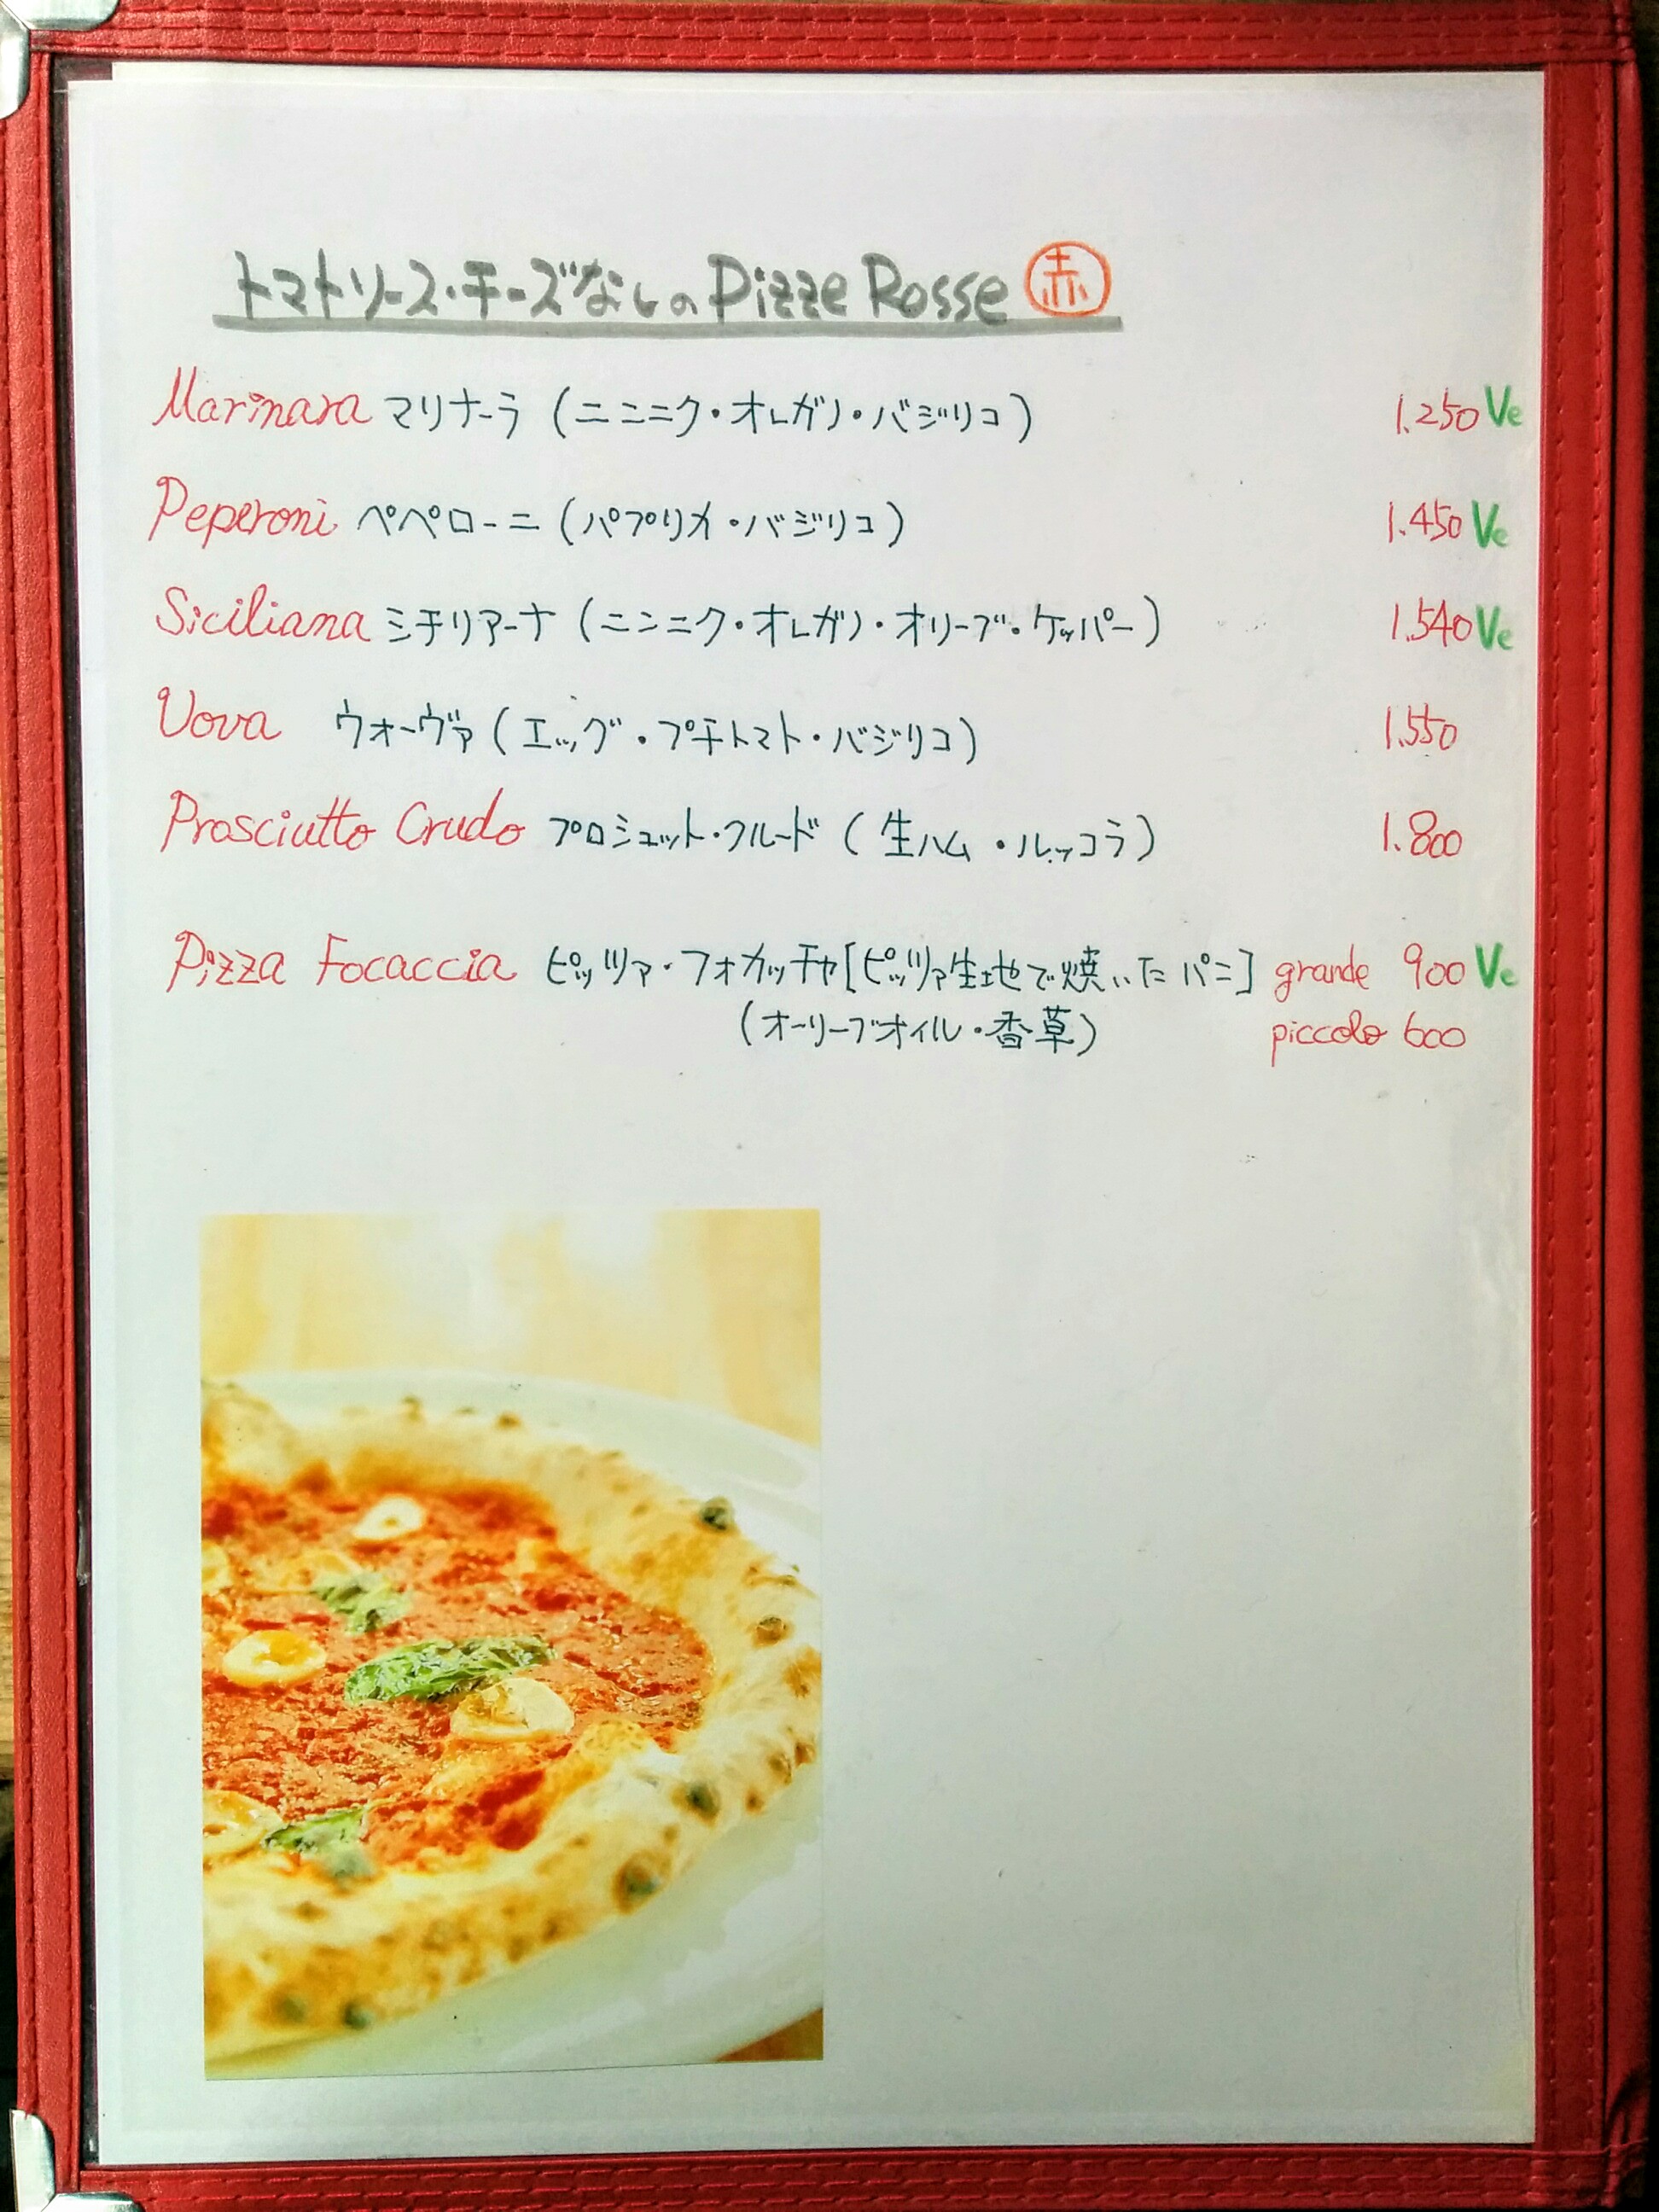 トマトソース・チーズなしの Pizze Rosse 赤
Marinara マリナーラ (ニンニク・オレガノ・バジリコ) 1.250 Ve
Peperoni ペペローニ (パプリカ・バジリコ) 1.450 Ve
Siciliana シチリアーナ (ニンニク・オレガノ・オリーブ・ケッパー) 1.540 Ve
Uova ウォーヴァ (エッグ・プチトマト・バジリコ) 1.550
Prosciutto Crudo プロシュット・クルード (生ハム・ルッコラ) 1.800
Pizza Focaccia ピッツァ・フォカッチャ[ピッツァ生地で焼いたパン] grande 900 Ve
(オーリーブオイル・香草) piccolo 600